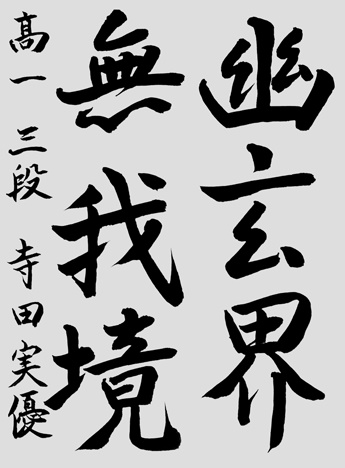 幽玄界
無我境
高一 三段 寺田実優